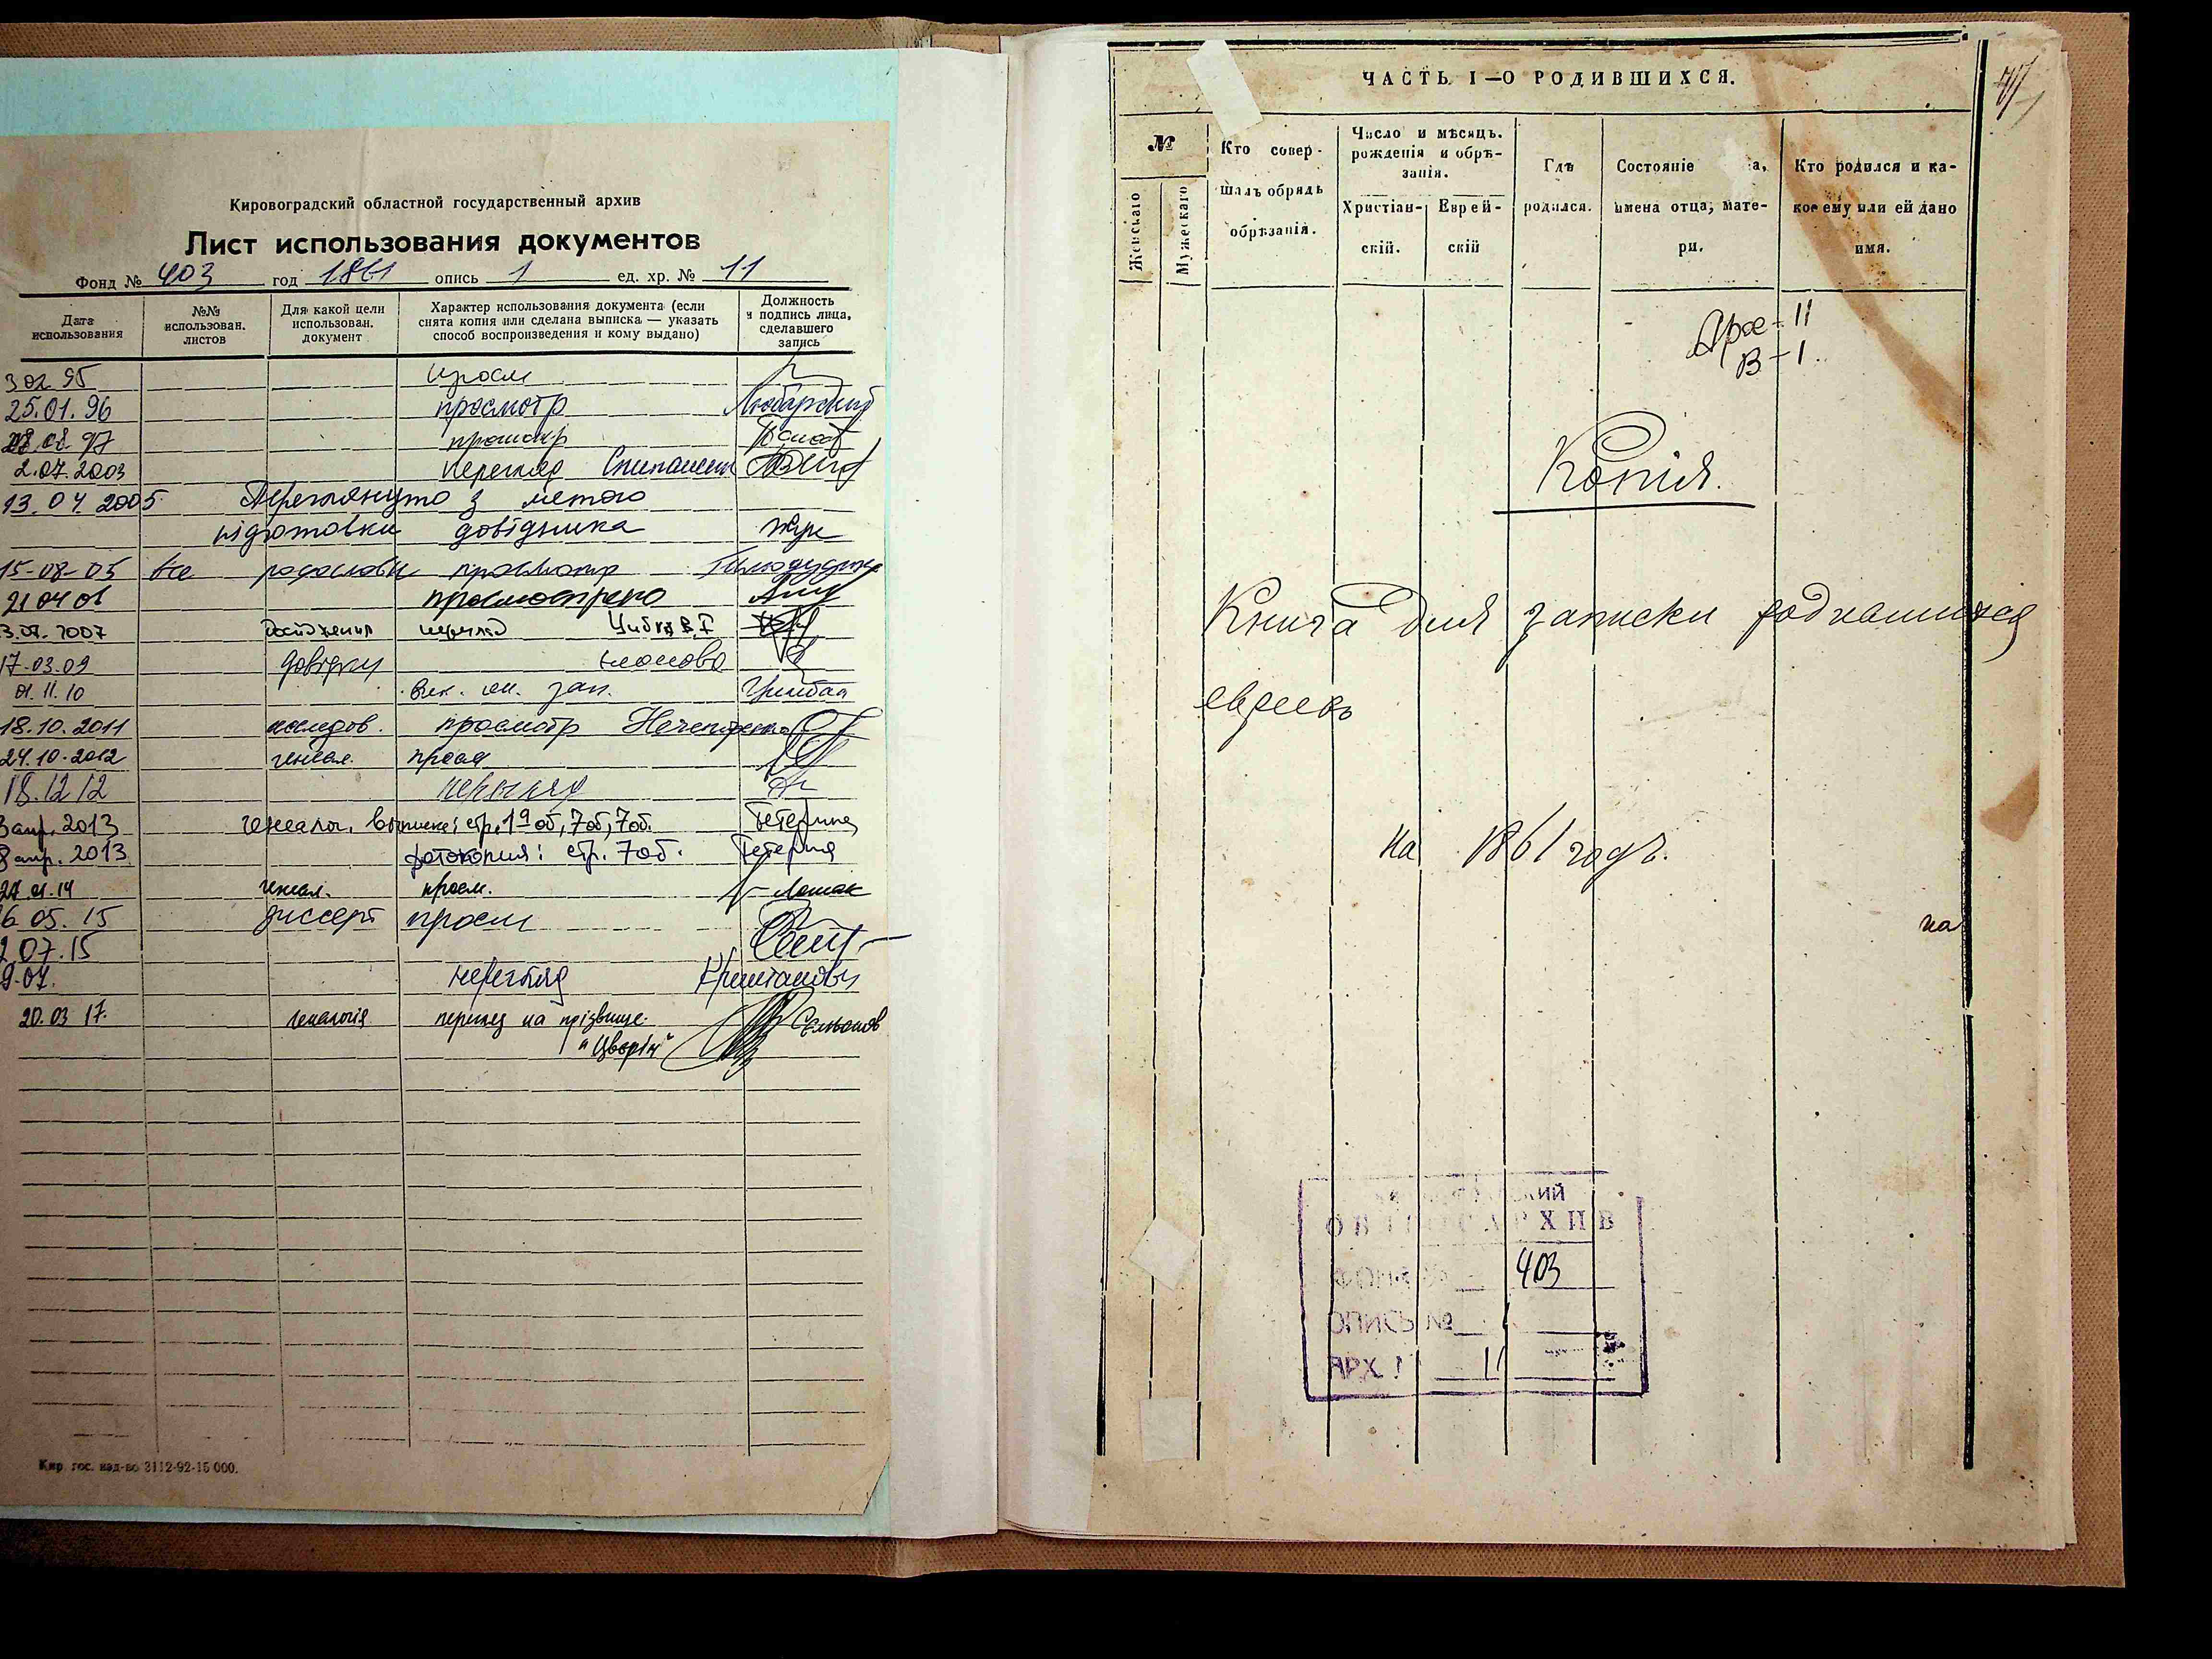 Кировоградский областной государственный архив
Лист использования документов
Фонд № 403 год 1861 опись 1 ед. хр. № 11
Дата использования
№№ использован. листов
Для какой цели использован. документ
Характер использования документа (если снята копия или сделана выписка — указать способ воспроизведения и кому выдано)
Должность и подпись лица, сделавшего запись
3 02 95 просм
25.01.96 просмотр Любарский
97 просмотр
2.07.2003 перегляд
13.04.2005 Переглянуто з метою
підготовки довідника Жук
15-08-05 все родословн просмотр
21 04 просмотрено
3.07.2007 перегляд
17-03-09 довідки
01.11.10 зап.
18.10.2011 исследов. просмотр
24.10.2012 генеал. просм
18.12 12 перегляд
3 апр. 2013 генеалог. выписки: стр. 19 об, 7об, 7об. Тетерина
8 апр. 2013 фотокопия: стр. 7об. Тетерина
14 генеал. просм.
6 05. 15 диссерт просм
2 07.15
9.07. перегляд
20.03 17. генеалогія перегляд на прізвище
"Цворін"
Кир. гос. изд-во 3112-92-15 000.
ЧАСТЬ I—О РОДИВШИХСЯ.
№
Женскаго
Мужескаго
Кто совершалъ обрядъ обрѣзанія.
Число и мѣсяцъ. рожденія и обрѣзанія.
Христіанскій.
Еврейскій
Гдѣ родился.
Состояніе а, имена отца, матери.
Кто родился и какое ему или ей дано имя.
Арх-11
В-1.
Копія.
Книга для записки родившихся
евреевъ
на 1861 годъ.
на
КИЙ
ОБЛГОСАРХИВ
ФОНД № 403
ОПИСЬ № 1
АРХ. № 11